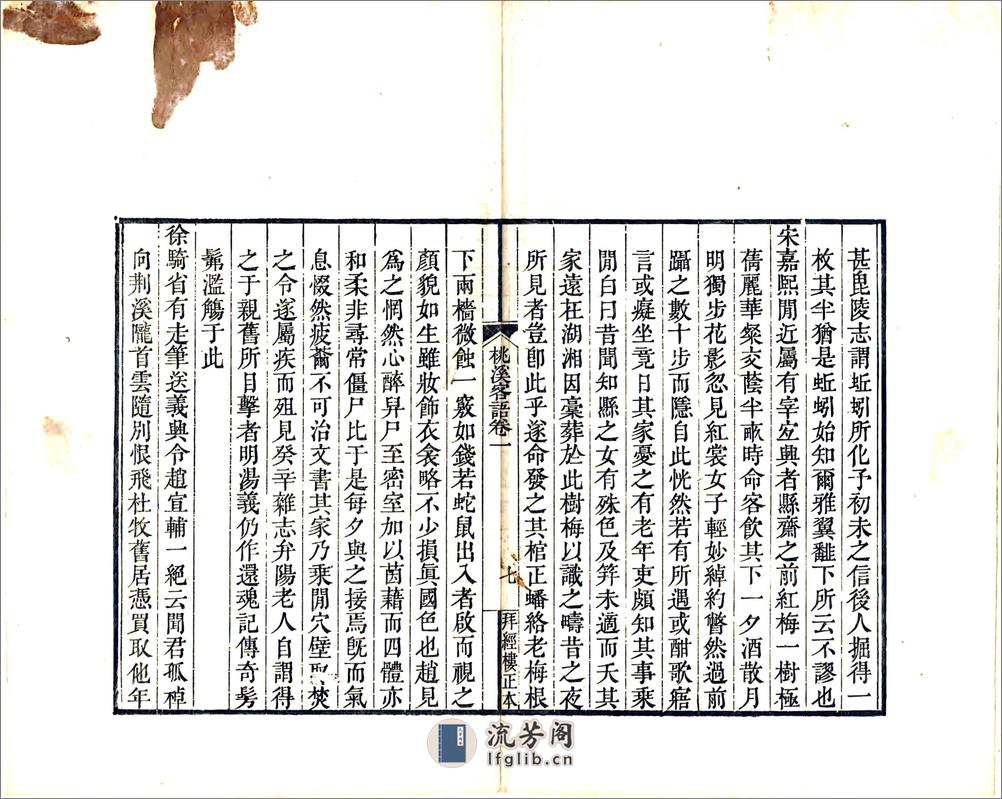 甚毘陵志謂蚯蚓所化予初未之信後人掘得一
枚其半猶是蚯蚓始知爾雅翼䨲下所云不謬也
宋嘉熙閒近屬有宰宜興者縣齋之前紅梅一樹極
蒨麗華粲交蔭半畝時命客飲其下一夕酒散月
明獨步花影忽見紅裳女子輕妙綽約瞥然過前
躡之數十步而隱自此恍然若有所遇或酣歌寤
言或癡坐竟日其家憂之有老年吏頗知其事乘
閒白曰昔聞知縣之女有殊色及笄未適而夭其
家遠在湖湘因藁葬於此樹梅以識之疇昔之夜
所見者豈卽此乎遂命發之其棺正蟠絡老梅根
桃溪客語卷一
七
拜經樓正本
下兩檣微蝕一竅如錢若蛇鼠出入者啟而視之
顏貌如生雖妝飾衣裳略不少損眞國色也趙見
爲之惘然心醉舁尸至密室加以茵藉而四體亦
和柔非尋常僵尸比于是每夕與之接焉旣而氣
息惙然疲薾不可治文書其家乃乘閒穴壁取焚
之令遂屬疾而殂見癸辛雜志弁陽老人自謂得
之于親舊所目擊者明湯義仍作還魂記傳奇髣
髴濫觴于此
徐騎省有走筆送義興令趙宣輔一絕云聞君孤棹
向荆溪隴首雲隨別恨飛杜牧舊居憑買取他年
流芳阁
lfglib.cn